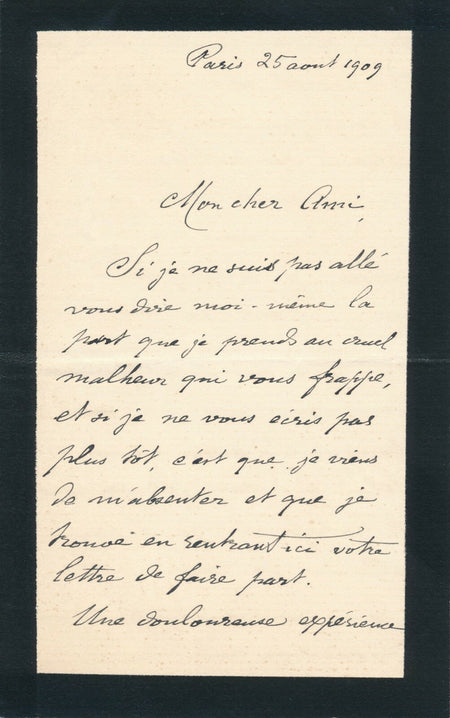 Paris 25 aout 1909
Mon cher Ami,
Si je ne suis pas allé
vous dire moi-même la
part que je prends au cruel
malheur qui vous frappe,
et si je ne vous écris pas
plus tôt, c'est que je viens
de m'absenter et que je
trouve en rentrant ici votre
lettre de faire part.
Une douloureuse expérience